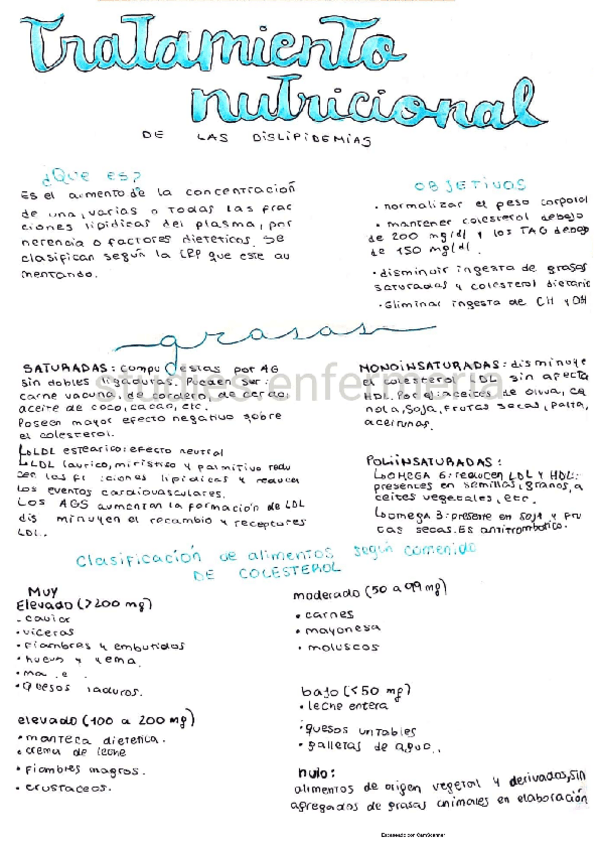 Tratamiento
nutricional
DE LAS DISLIPIDEMIAS
¿Que es?
Es el aumento de la concentración
de una, varias o todas las frac
ciones lipidicas del plasma, por
herencia o factores dieteticos. Se
clasifican según la LPP que este au
mentando.
OBJETIVOS
• normalizar el peso corporal
• mantener colesterol debajo
de 200 mg/dl y los TAG debajo
de 150 mg/dl.
• disminuir ingesta de grasas
saturadas y colesterol dietario
• Eliminar ingesta de CH y OH
grasas
studies.enfermeria
SATURADAS: compuestas por AG
sin dobles ligaduras. Pueden ser:
carne vacuna, de cordero, de cerdo,
aceite de coco, cacao, etc.
Poseen mayor efecto negativo sobre
el colesterol.
↳LDL estearico: efecto neutral
↳LDL laurico, miristico y palmitivo redu
cen las lipidicas y reducen
los eventos cardiovasculares.
Los AGS aumentan la formación de LDL
disminuyen el recambio y receptores
LDL.
MONOINSATURADAS: disminuye
el colesterol LDL sin afecta
HDL. Por ej: aceites de oliva, ca
nola, soja, frutas secas, palta,
aceitunas.
POLIINSATURADAS:
↳OMEGA 6: reducen LDL Y HDL:
presentes en semillas, granos, a
ceites vegetales, etc.
↳omega 3: presente en soja y fru
tas secas. Es antitrombotico.
Clasificación de alimentos según contenido
DE COLESTEROL
Muy
Elevado (>200 mg)
- caviar
• viceras
• fiambres y embutidos
• huevo y yema.
• quesos
elevado (100 a 200 mg)
• manteca dietetica.
• crema de leche
• fiambres magros.
• crustaceos.
moderado (50 a 99 mg)
• carnes
• mayonesa
• moluscos
bajo (<50 mg)
• leche entera
• quesos untables
• galletas de agua.
nulo:
alimentos de origen vegetal y derivados, sin
agregados de grasas animales en elaboración
Escaneado con CamScanner